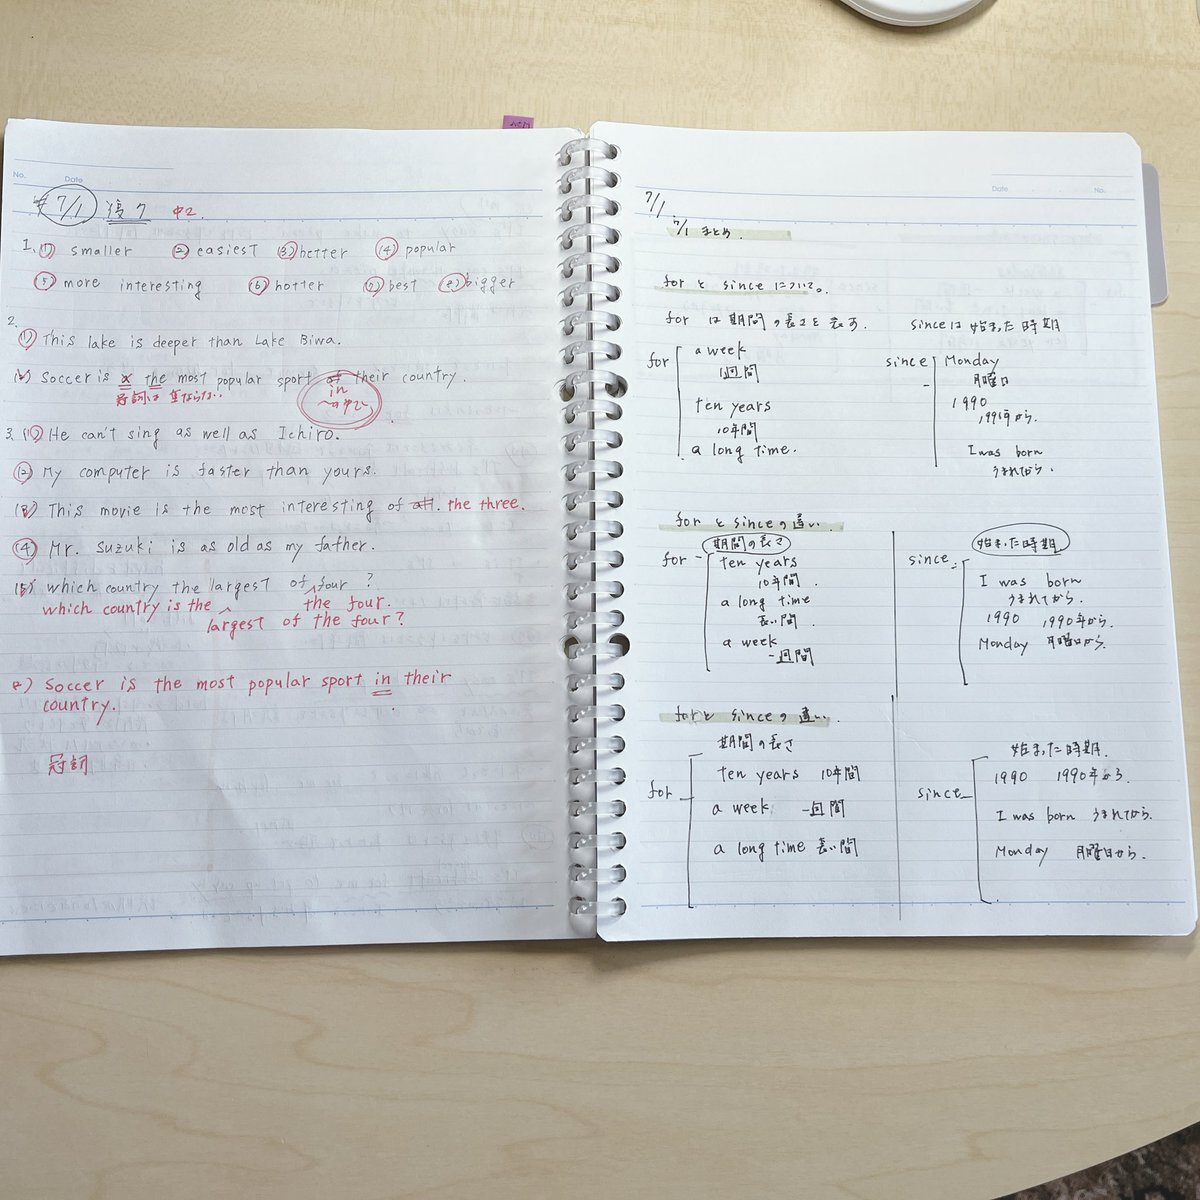 No.
Date
7/1 復7 中2.
1. (1) smaller (2) easiest (3) better (4) popular
(5) more interesting (6) hotter (7) best (8) bigger
2.
(1) This lake is deeper than Lake Biwa.
(2) Soccer is × the most popular sport of their country.
冠詞は 重ならない. in ~の中で
3. (1) He can't sing as well as Ichiro.
(2) My computer is faster than yours.
(3) This movie is the most interesting of all. the three.
(4) Mr. Suzuki is as old as my father.
(5) which country the largest of four ?
the four.
which country is the largest of the four?
2) Soccer is the most popular sport in their
country.
冠詞
Date No.
7/1
7/1 まとめ.
for と since について。
for は 期間の長さを表す. sinceは 始まった時期
for a week since Monday
1週間 月曜日
ten years 1990
10年間 から.
a long time. I was born
うまれてから.
for と since の違い.
for 期間の長さ since 始まった時期
ten years I was born
10年間. うまれてから.
a long time 1990 1990年から.
長い間. Monday 月曜日から.
a week
一週間
for と since の 違い.
期間の長さ 始まった時期.
for ten years 10年間 since 1990 1990年から.
a week 一週間 I was born うまれてから.
a long time 長い間 Monday 月曜日から.